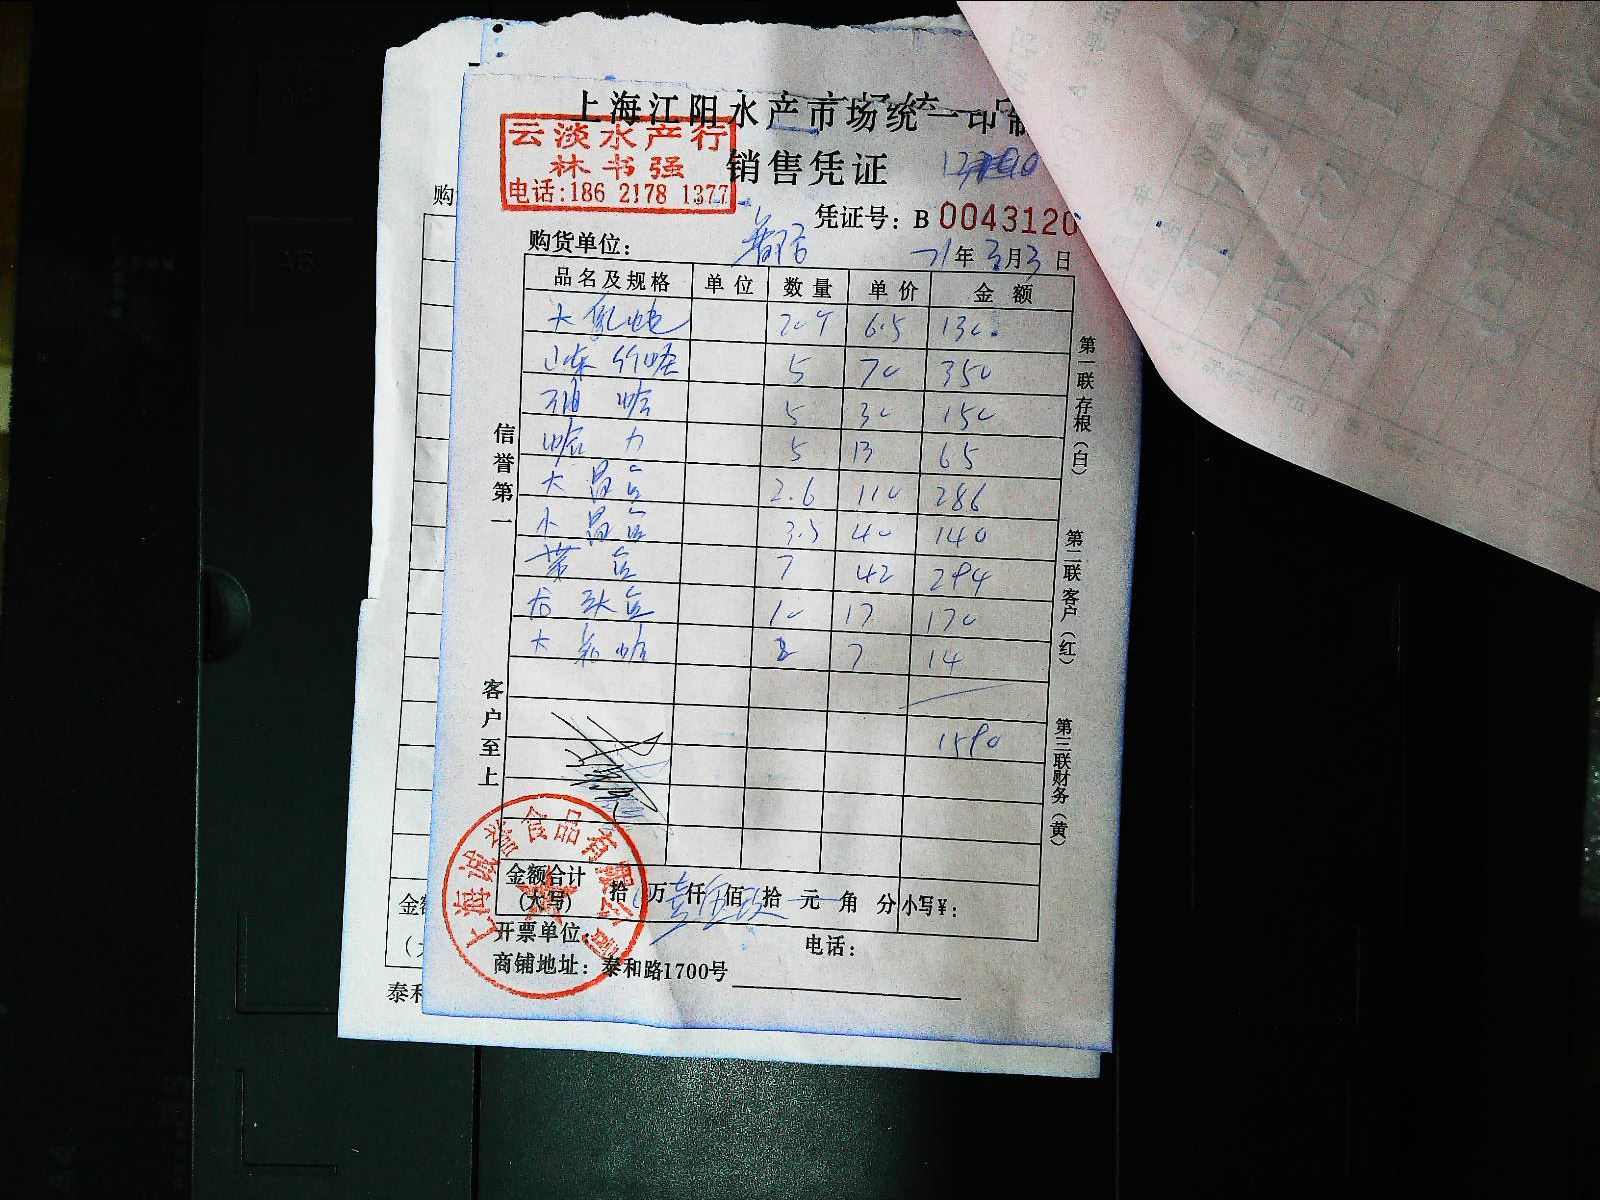 上海江阳水产市场统一印制
云淡水产行
林书强
电话:186 2178 1377
销售凭证
凭证号: B 0043120
购
购货单位:
21年3月3日
品名及规格 单位 数量 单价 金额
大 6.5 130
山东竹蛏 5 70 350
油蛤 5 30 150
蛤力 5 13 65
大昌鱼 2.6 110 286
小昌鱼 3.5 40 140
带鱼 7 42 294
龙头鱼 10 17 170
大 2 7 14
1590
信誉第一
客户至上
第一联存根(白)
第二联客户(红)
第三联财务(黄)
金额合计
(大写) 拾 万 仟 佰 拾 元 角 分 小写¥:
开票单位: 电话:
商铺地址: 泰和路1700号
上海诚誉食品有限公司
泰和